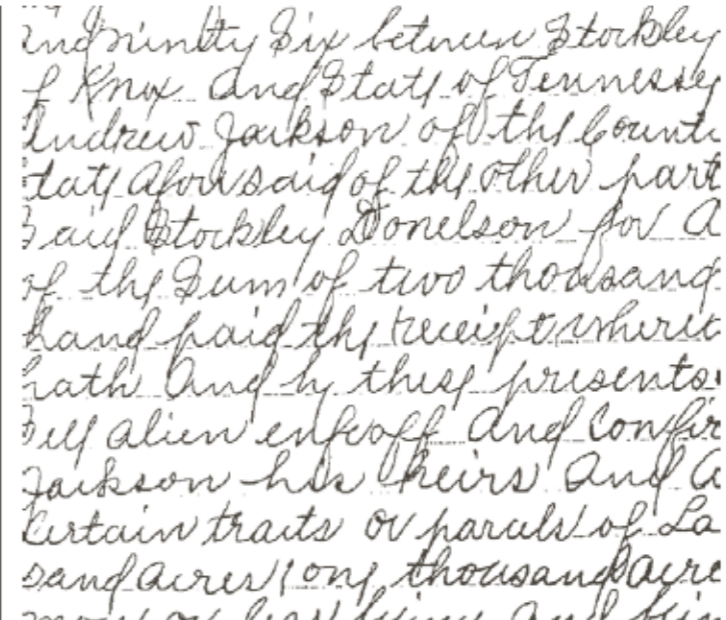 and ninety Six between Stockley
of Knox and State of Tennessey
Andrew Jackson of the Count
tate aforesaid of the other part
Said Stockley Donelson for a
of the Sum of two thousand
hand paid the receipt where
hath and by these presents
Sell alien enfeoff and Confir
Jackson his heirs and a
Certain tracts or parcels of La
sand acres one thousand acre
more or less lying and bein